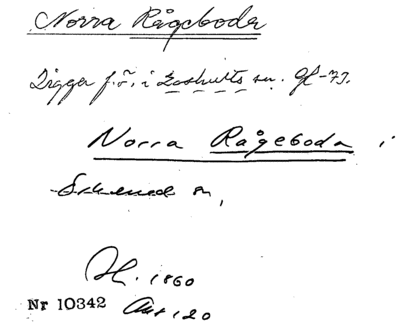 Norra Rågeboda
Ligger f.ö. i Loshults sn. Gl-73.
Norra Rågeboda i
sn,
1860
Nr 10342 Akt 120